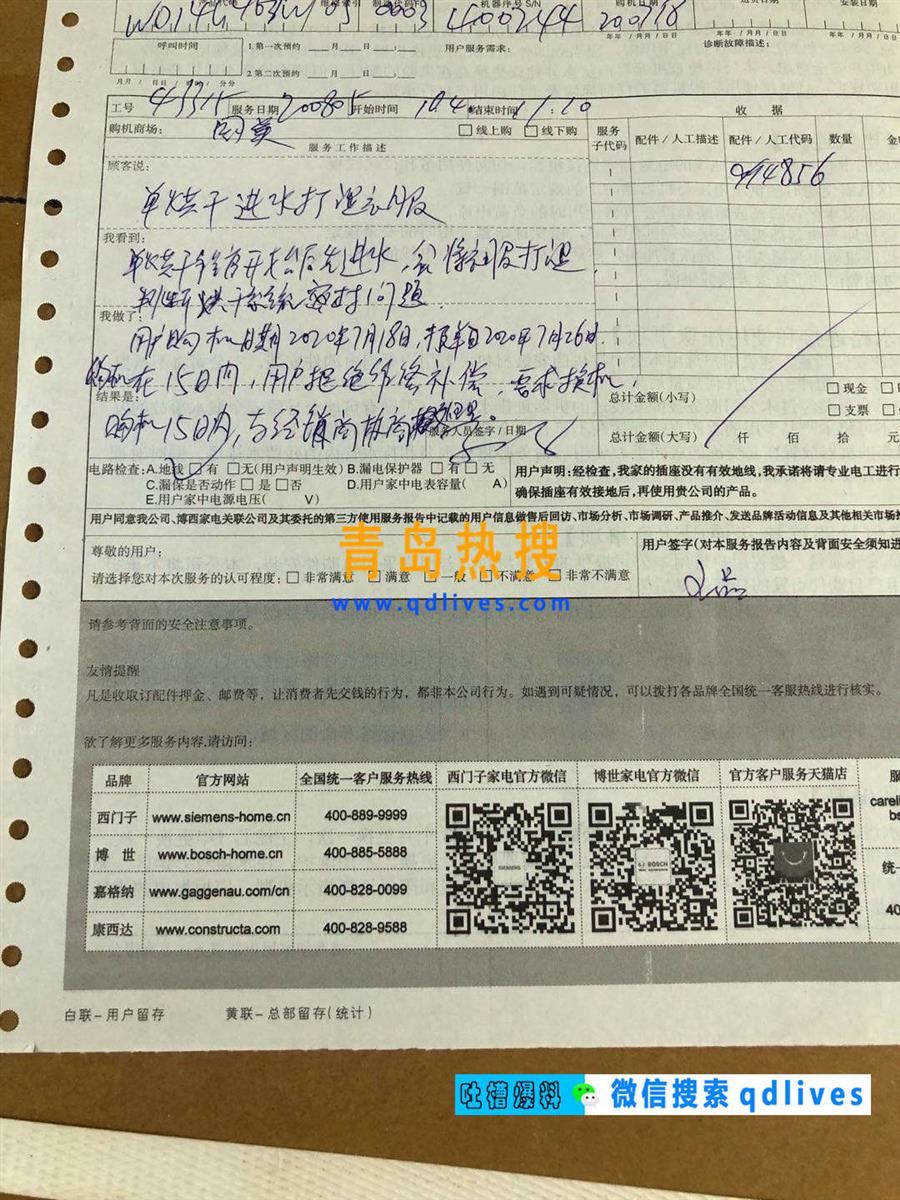 产品代码 维修索引 制造代码FD 机器序号 S/N 购机日期 送货日期 安装日期
WD14G 0003 200718
呼叫时间 1.第一次预约 月 日 : 用户服务需求: 诊断故障描述:
2.第二次预约 月 日 :
工号 45315 服务日期 200805 开始时间 10.4 结束时间 11:20 收 据
购机商场: 国美 □线上购 □线下购 服务子代码 配件/人工描述 配件/人工代码 数量
服务工作描述
994856
顾客说:
单烘干进水打湿衣服
我看到:
单烘干程序开始后先进水,会将衣服打湿,
判断烘干系统密封问题.
我做了:
用户购机日期2020年7月18日,报单日2020年7月26日.
购机在15日内,用户拒绝维修补偿,要求换机,
结果是:
购机15日内,与经销商协商
服务人员签字/日期
总计金额(小写) □现金
□支票
总计金额(大写) 仟 佰 拾 元
电路检查:A.地线 □有 □无(用户声明生效) B.漏电保护器 □有 □无
C.漏保是否动作 □是 □否 D.用户家中电表容量( A)
E.用户家中电源电压( V)
用户声明:经检查,我家的插座没有有效地线,我承诺将请专业电工进行
确保插座有效接地后,再使用贵公司的产品。
用户同意我公司、博西家电关联公司及其委托的第三方使用服务报告中记载的用户信息做售后回访、市场分析、市场调研、产品推介、发送品牌活动信息及其他相关市场
尊敬的用户: 用户签字(对本服务报告内容及背面安全须知进
青岛热搜
请选择您对本次服务的认可程度: □非常满意 □满意 □一般 □不满意 □非常不满意
www.qdlives.com
请参考背面的安全注意事项。
友情提醒
凡是收取订配件押金、邮费等,让消费者先交钱的行为,都非本公司行为。如遇到可疑情况,可以拨打各品牌全国统一客服热线进行核实。
欲了解更多服务内容,请访问:
品牌 官方网站 全国统一客户服务热线 西门子家电官方微信 博世家电官方微信 官方客户服务天猫店
西门子 www.siemens-home.cn 400-889-9999
博 世 www.bosch-home.cn 400-885-5888
SIEMENS BOSCH
嘉格纳 www.gaggenau.com/cn 400-828-0099
康西达 www.constructa.com 400-828-9588
白联-用户留存 黄联-总部留存(统计)
吐槽爆料 微信搜索 qdlives